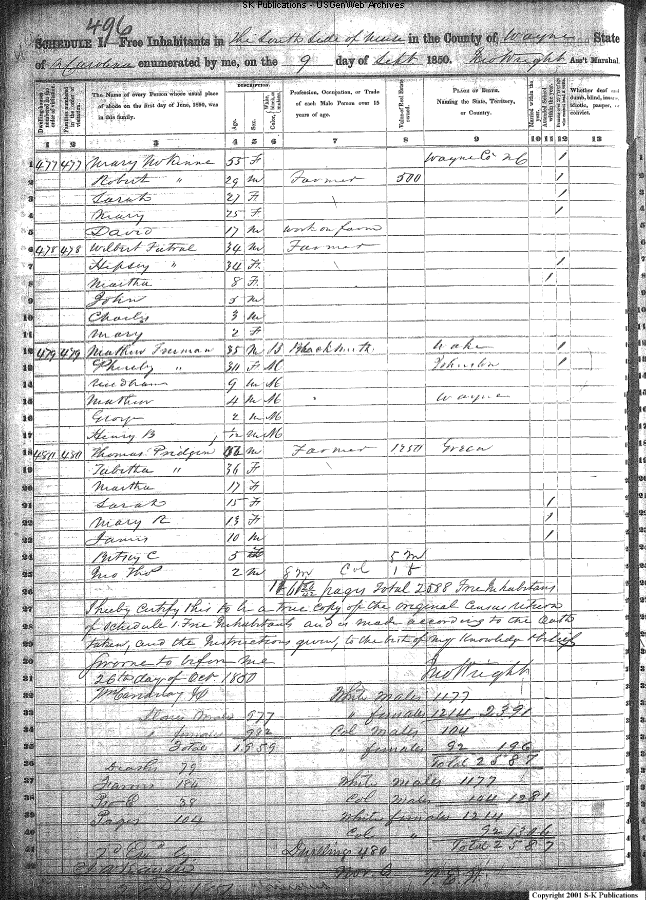 SK Publications - USGenWeb Archives
496
SCHEDULE I. Free Inhabitants in The South Side of Neuse in the County of Wayne State
of N Carolina enumerated by me, on the 9 day of Sept 1850. Jno Wright Ass't Marshal.
Dwelling-houses numbered in the order of visitation. Families numbered in the order of visitation. The Name of every Person whose usual place of abode on the first day of June, 1850, was in this family. DESCRIPTION. Age. Sex. Color, Profession, Occupation, or Trade of each Male Person over 15 years of age. Value of Real Estate owned. PLACE OF BIRTH. Naming the State, Territory, or Country. Married within the year. Attended School within the year. Whether deaf and dumb, blind, insane, idiotic, pauper, or convict.
1 2 3 4 5 6 7 8 9 10 11 12 13
1 477 477 Mary McKinne 55 F Wayne Co NC 1
2 Robert " 29 M Farmer 500 1
3 Sarah 27 F 1
4 Mary 25 F 1
5 David 17 M work on farm
6 478 478 Wilbert 34 M Farmer
7 Hepsey " 34 F 1
8 Martha 8 F 1
9 John 5 M
10 Charles 3 M
11 Mary 2 F
12 479 479 Mathew Freeman 35 M B Blacksmith Wake 1
13 Phereby " 30 F M Johnston 1
14 Needham 9 M M
15 Mathew 4 M M Wayne
16 George 2 M M
17 Henry B 1/12 M M
18 480 480 Thomas Pridgen M Farmer 1250 Green
19 Tabitha " 36 F
20 Martha 17 F
21 Sarah 15 F 1
22 Mary R 13 F 1
23 James 10 M 1
24 Betsey C 5 5 m
25 Jno Thos 2 M 8 m Col 1 f
26 pages Total 2588 Free Inhabitans
27 I hereby certify this to be a true copy of the original Census return
28 of Schedule 1. Free Inhabitants and is made according to the Oath
29 taken, and the Instructions given, to the best of my Knowledge & belief
30 Sworne to before me Jno Wright
31 26th day of Oct. 1850
32 White Males 1177
33 Slaves Males 977 " females 1214 2391
34 " females 982 Col Males 104
35 Total 1959 " females 92 196
36 Deaths 79 Total 2587
37 Farms 184 White Males 1177
38 38 Col Males 104 1281
39 Pages 104 White females 1214
40 Col " 92 1306
41 Dwelling 480 Total 2587
Copyright 2001 S-K Publications